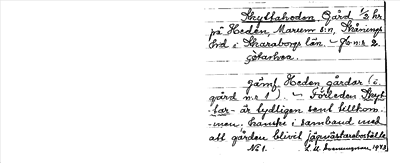 Skyttaheden Gård 1/2 hr.
på Heden, Marum s:n, Skånings
hrd i Skaraborgs län. — Jb n:o 2.
Götarhva.
Jämf. Heden gårdar (i
gård n:o 1) — Förleden Skyt-
tar- är tydligen sent tillkom-
men, kanske i samband med
att gården blivit
No 1.